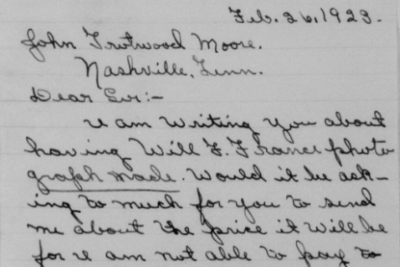 Feb. 26, 1923.
John Trotwood Moore.
Nashville, Tenn.
Dear Sir:-
I am writing you about
having Will F. France photo
graph made. Would it be ask-
ing to much for you to send
me about the price it will be
for I am not able to pay to